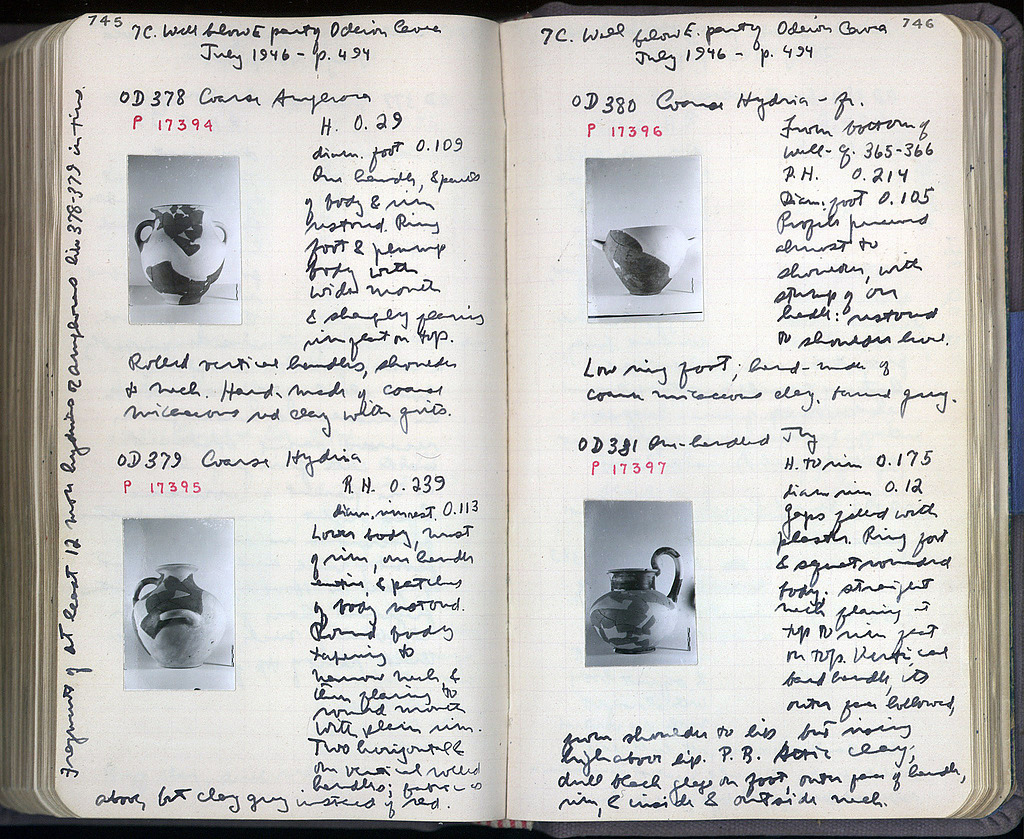 745
7C. Well below E. party Odeion Cavea
July 1946 - p. 494
OD 378 Coarse Amphora
P 17394
H. 0.29
diam. foot 0.109
One handle, & parts
of body & rim
restored. Ring
foot & plump
body with
wide mouth
& sharply flaring
rim flat on top.
Rolled vertical handles, shoulder
to neck. Hand-made of coarse
micaceous red clay with grits.
OD 379 Coarse Hydria
P 17395
P.H. 0.239
diam. 0.113
Lower body, most
of rim, one handle
entire, & patches
of body restored.
Round body
tapering to
narrow neck, &
then flaring to
round mouth
with plain rim.
Two horizontal &
one vertical rolled
handles; fabric as
above, but clay grey instead of red.
Fragments of at least 12 more hydrias or amphoras like 378-379 in tins.
746
7C. Well below E. party Odeion Cavea
July 1946 - p. 494
OD 380 Coarse Hydria - fr.
P 17396
From bottom of
well - cf. 365-366
P.H. 0.214
Diam. foot 0.105
Profile preserved
almost to
shoulder, with
stump of one
handle: restored
to shoulder here.
Low ring foot; hand-made of
coarse micaceous clay, burned grey.
OD 381 One-handled Jug
P 17397
H. to rim 0.175
diam rim 0.12
Gaps filled with
plaster. Ring foot
& squat rounded
body. straight
neck flaring at
top to rim flat
on top. Vertical
band handle, its
outer face hollowed,
from shoulder to lip but rising
high above lip. P.B. Attic clay;
dull black glaze on foot, outer face of handle,
rim, & inside & outside neck.